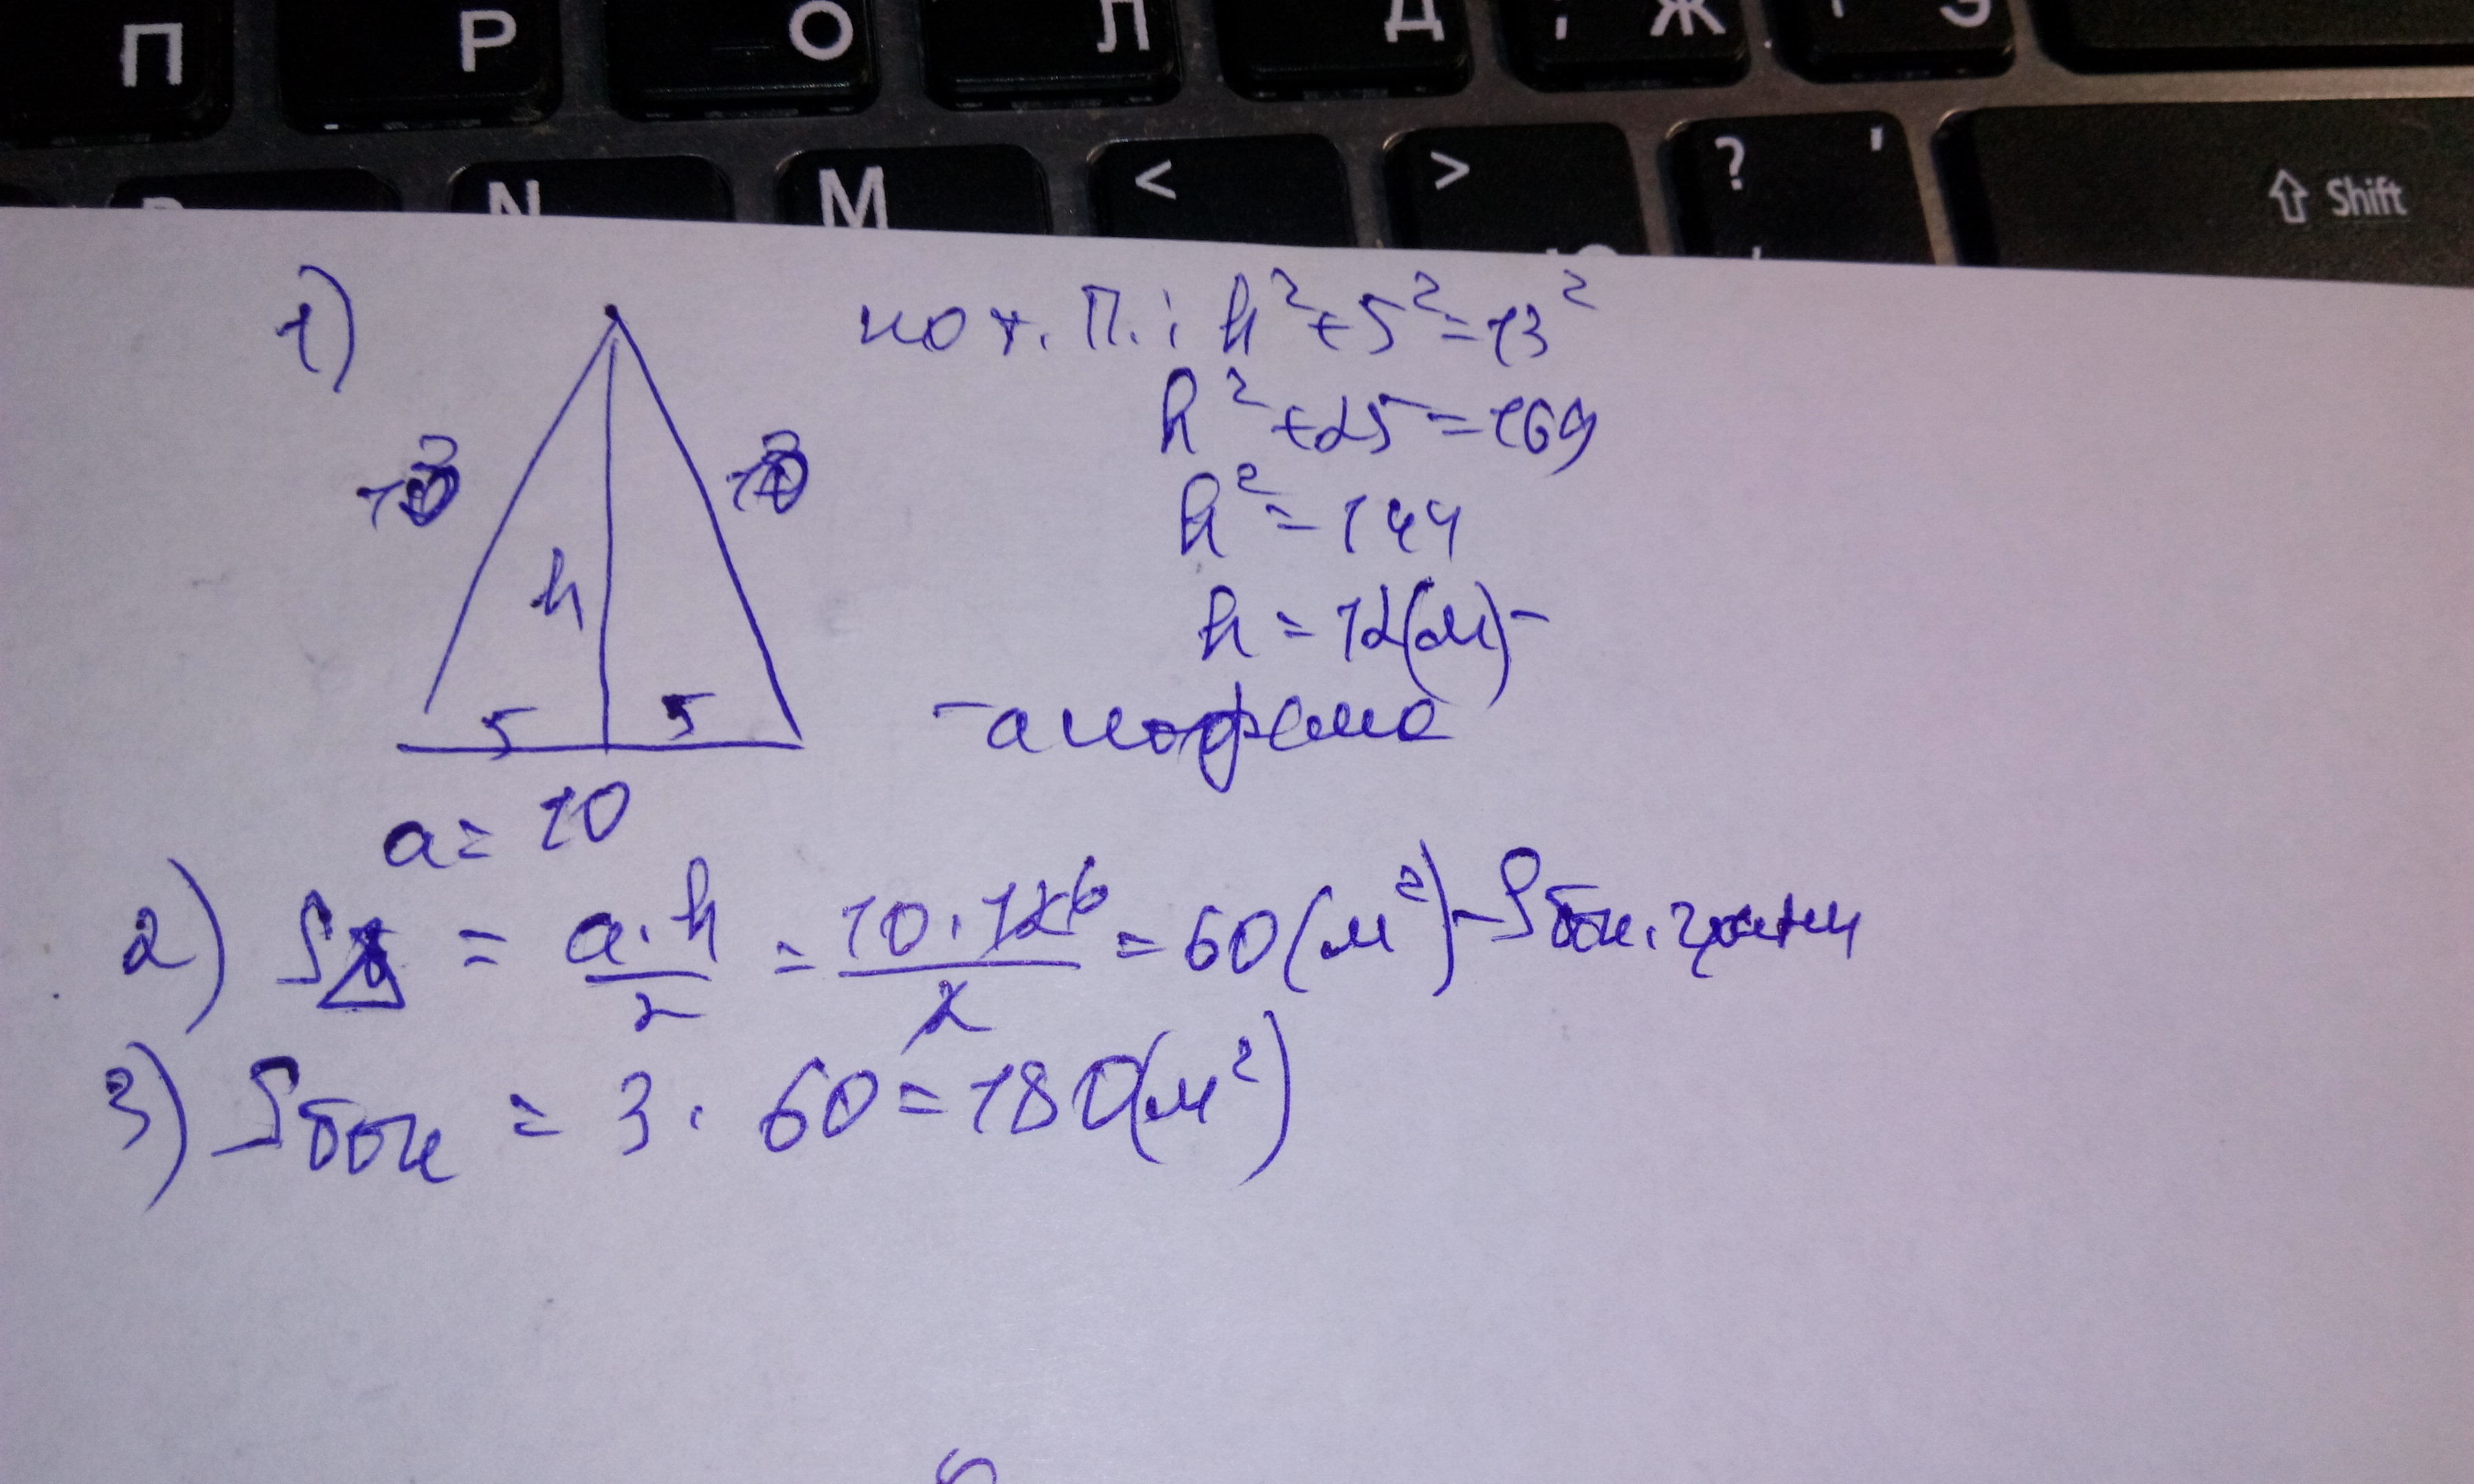 П Р О Л Д ; Ж Э
N М < > ? ' Shift
1)
по т. П.: h²+5²=13²
h²+25=169
h²=144
h=12(м)-
-апофема
13 13
h
5 5
a=10
2) S△ = a·h/2 = 10·12 6/2 = 60(м²)-Sбок. грани
3) Sбок = 3·60=180(м²)